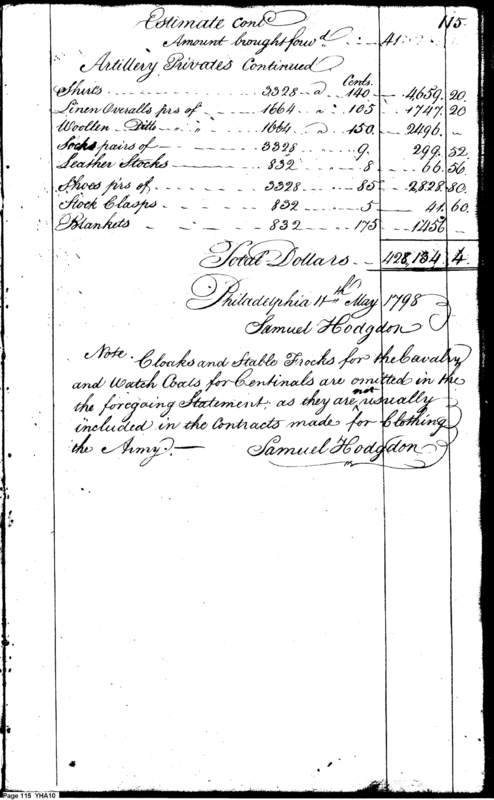 Estimate contd 115
Amount brought forwd 41
Artillery Privates Continued
Cents.
Shirts 3328 a 140 4659. 20
Linen Overalls prs of 1664 a 105 1747. 20
Woollen Ditto 1664 a 150 2496.
Socks pairs of 3328 9. 299. 52
Leather Stocks 832 8 66. 56
Shoes prs of 3328 85 2828. 80
Stock Clasps 832 5 41. 60
Blankets 832 175 1456
Total Dollars 428,134 4
Philadelphia 11th May 1798
Samuel Hodgdon
Note. Cloaks and Stable Frocks for the Cavalry
and Watch Coats for Centinals are omitted in the
the foregoing Statement; as they are not usually
included in the Contracts made for Clothing
the Army.
Samuel Hodgdon
Page 115 YHA10